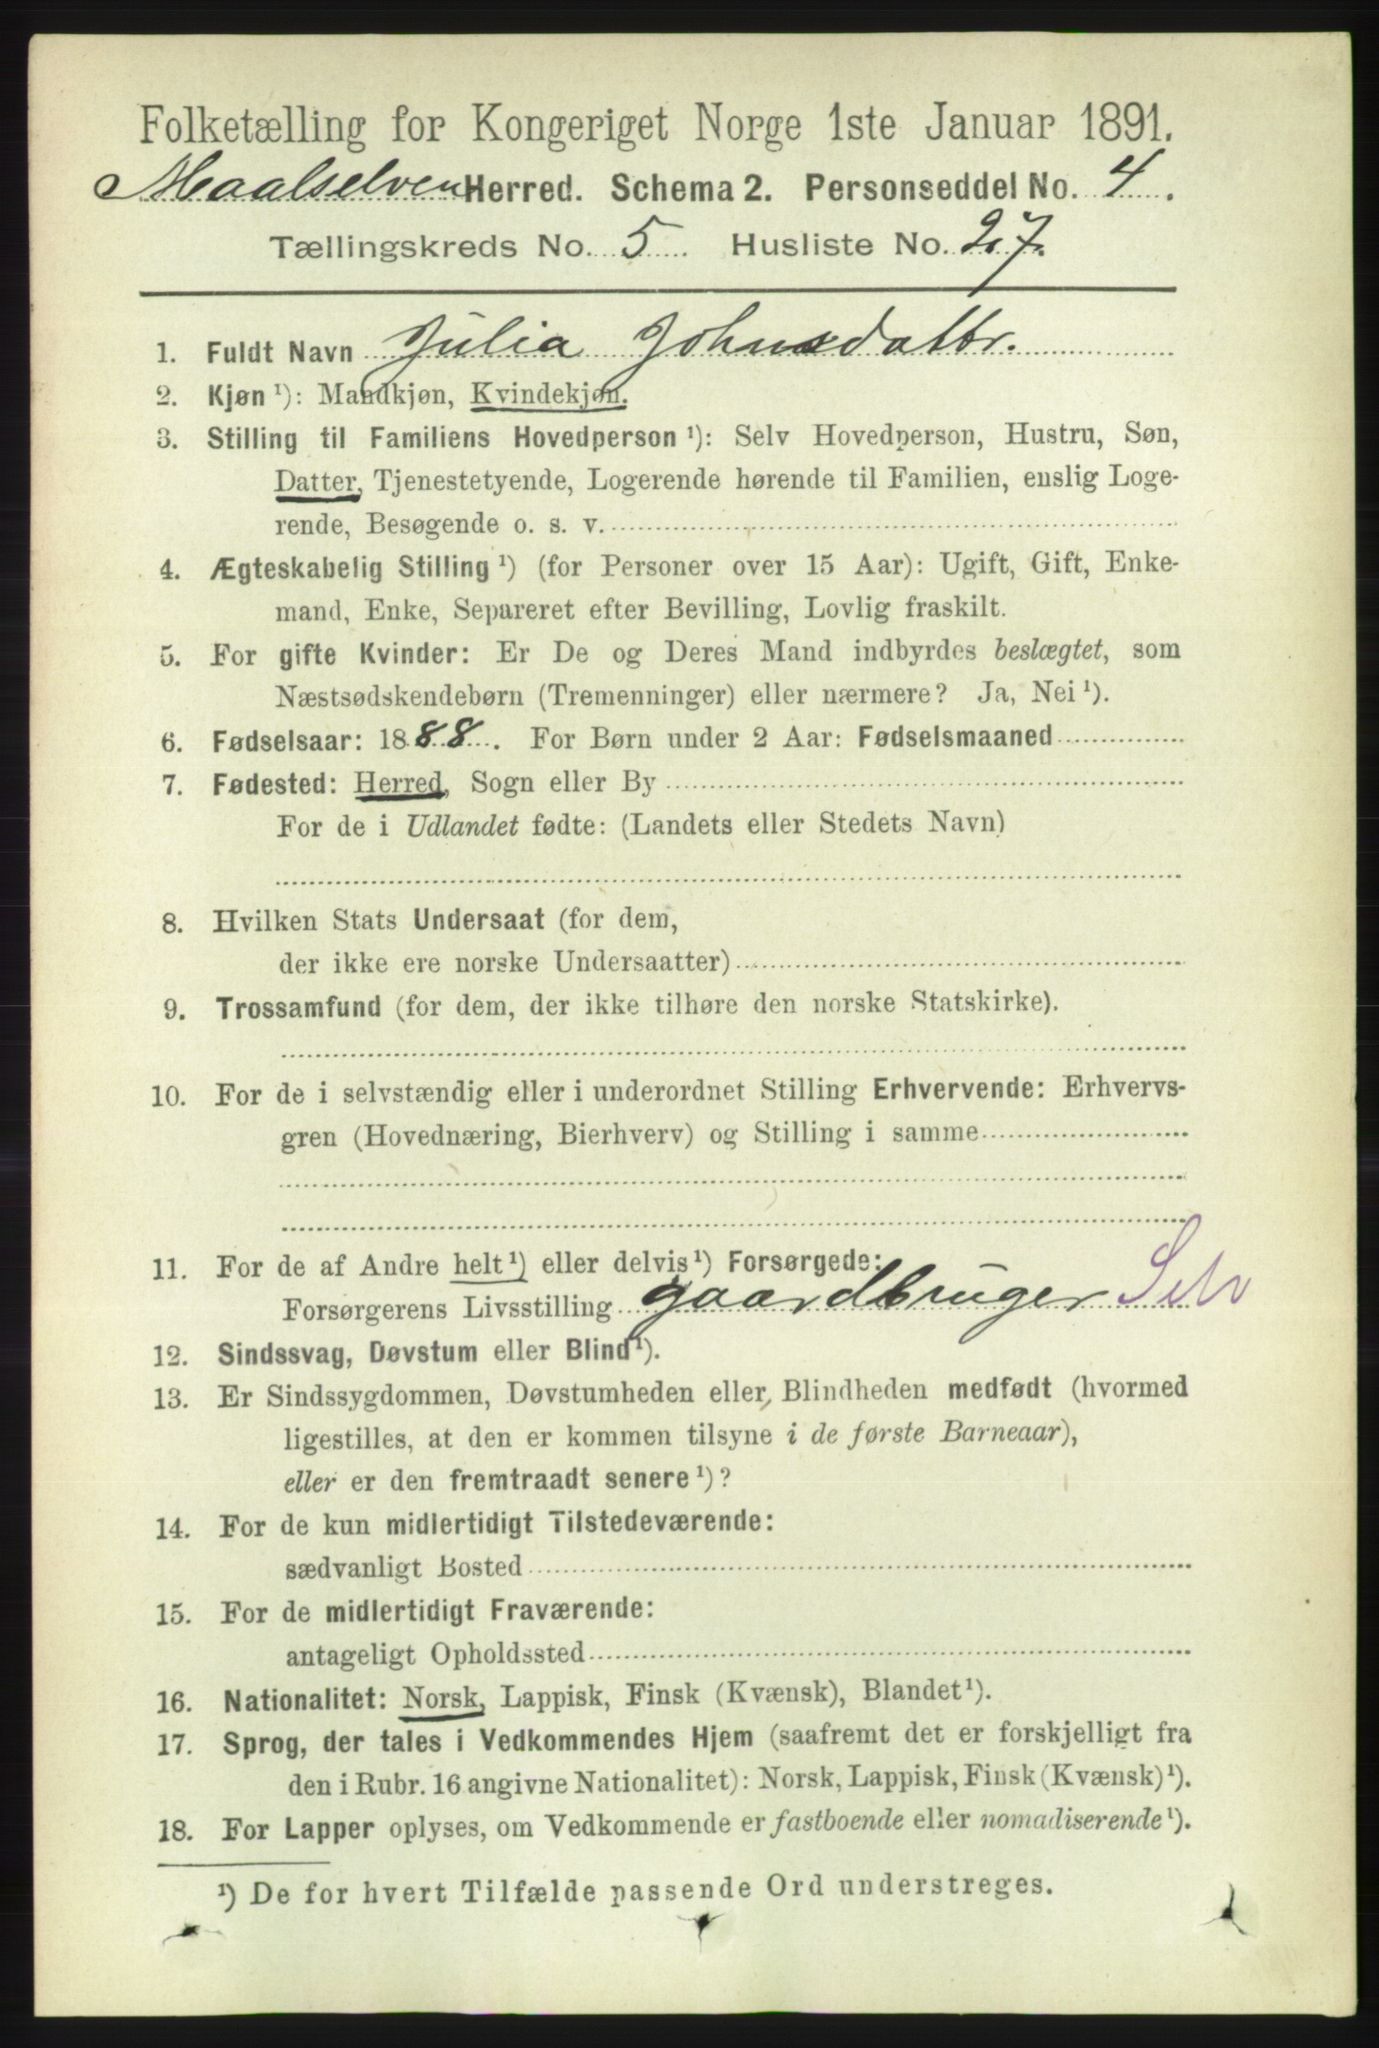 Folketælling for Kongeriget Norge 1ste Januar 1891.
Maalselven Herred. Schema 2. Personseddel No. 4.
Tællingskreds No. 5. Husliste No. 27.
1. Fuldt Navn Julia Johnsdattr.
2. Kjøn ¹): Mandkjøn, Kvindekjøn.
3. Stilling til Familiens Hovedperson ¹): Selv Hovedperson, Hustru, Søn,
Datter, Tjenestetyende, Logerende hørende til Familien, enslig Loge-
rende, Besøgende o. s. v.
4. Ægteskabelig Stilling ¹) (for Personer over 15 Aar): Ugift, Gift, Enke-
mand, Enke, Separeret efter Bevilling, Lovlig fraskilt.
5. For gifte Kvinder: Er De og Deres Mand indbyrdes beslægtet, som
Næstsødskendebørn (Tremenninger) eller nærmere? Ja, Nei ¹).
6. Fødselsaar: 1888. For Børn under 2 Aar: Fødselsmaaned
7. Fødested: Herred, Sogn eller By
For de i Udlandet fødte: (Landets eller Stedets Navn)
8. Hvilken Stats Undersaat (for dem,
der ikke ere norske Undersaatter)
9. Trossamfund (for dem, der ikke tilhøre den norske Statskirke).
10. For de i selvstændig eller i underordnet Stilling Erhvervende: Erhvervs-
gren (Hovednæring, Bierhverv) og Stilling i samme
11. For de af Andre helt ¹) eller delvis ¹) Forsørgede:
Forsørgerens Livsstilling gaardbruger Selv
12. Sindssvag, Døvstum eller Blind ¹).
13. Er Sindssygdommen, Døvstumheden eller Blindheden medfødt (hvormed
ligestilles, at den er kommen tilsyne i de første Barneaar),
eller er den fremtraadt senere ¹)?
14. For de kun midlertidigt Tilstedeværende:
sædvanligt Bosted
15. For de midlertidigt Fraværende:
antageligt Opholdssted
16. Nationalitet: Norsk, Lappisk, Finsk (Kvænsk), Blandet ¹).
17. Sprog, der tales i Vedkommendes Hjem (saafremt det er forskjelligt fra
den i Rubr. 16 angivne Nationalitet): Norsk, Lappisk, Finsk (Kvænsk) ¹).
18. For Lapper oplyses, om Vedkommende er fastboende eller nomadiserende ¹).
¹) De for hvert Tilfælde passende Ord understreges.